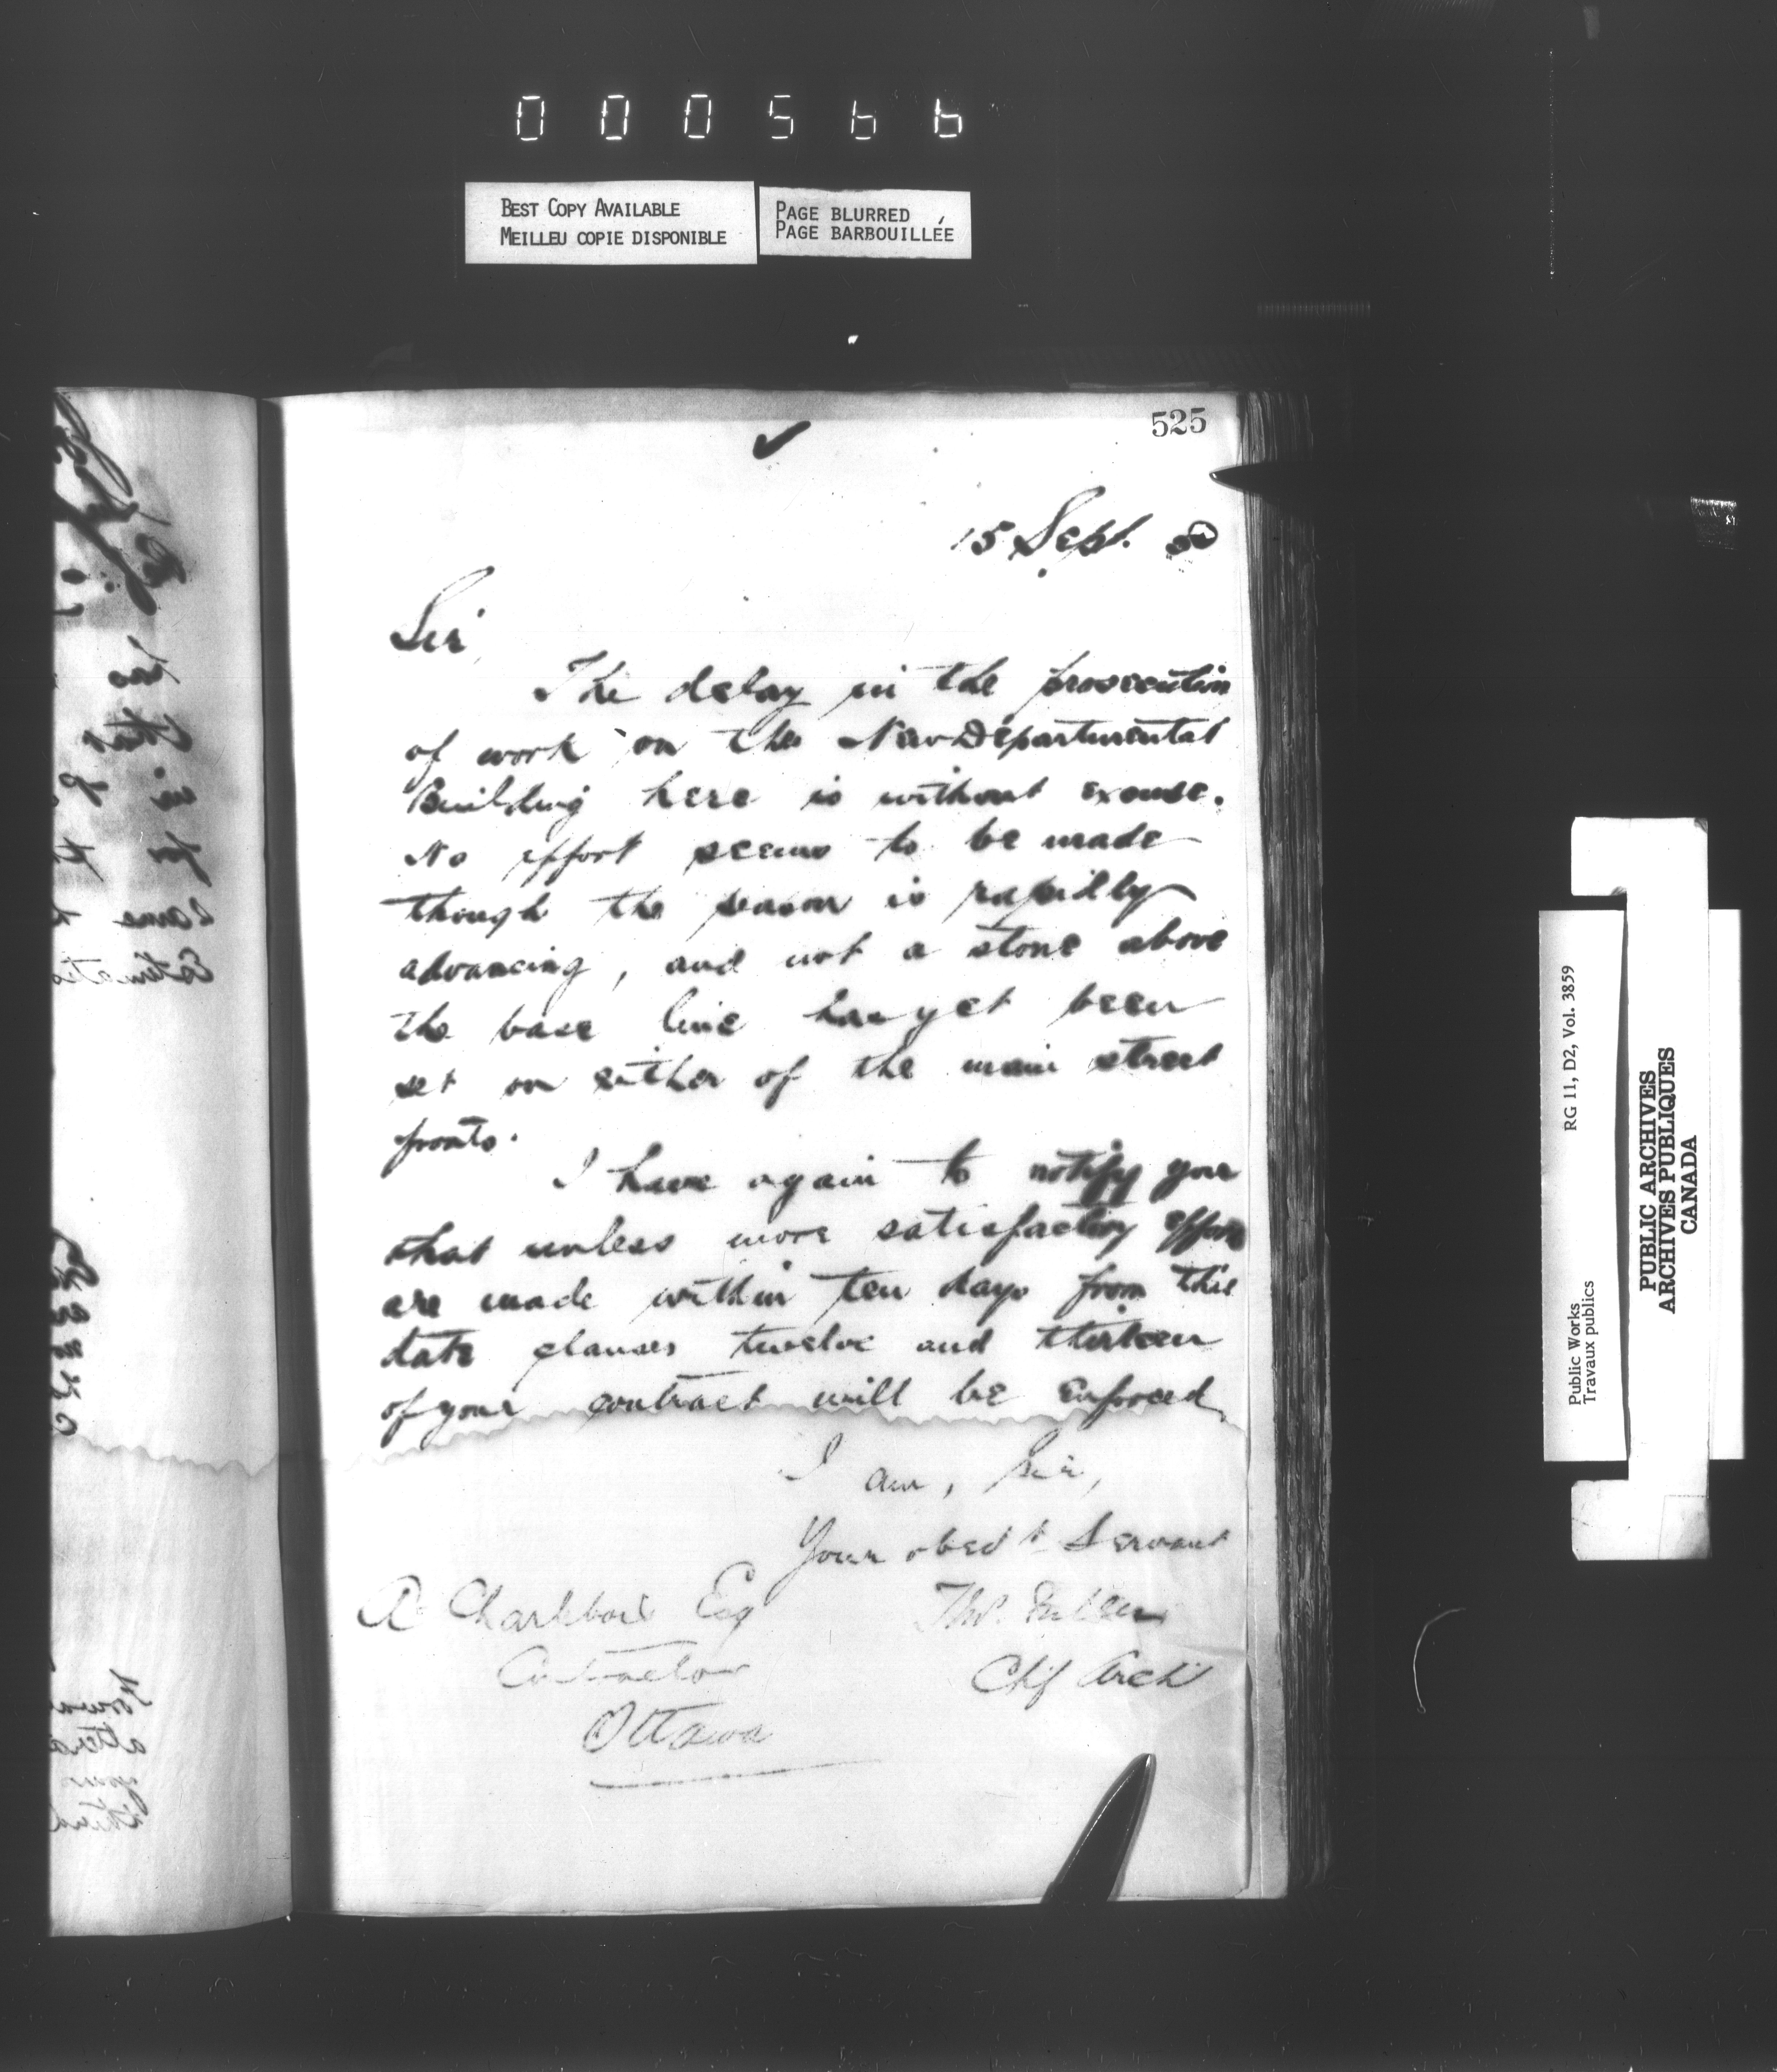 000566
BEST COPY AVAILABLE
MEILLEU COPIE DISPONIBLE
PAGE BLURRED
PAGE BARBOUILLÉE
525
15 Sept.
Sir,
The delay in the prosecution
of work on the New Departmental
Building here is without excuse.
No effort seems to be made
though the season is rapidly
advancing, and not a stone above
the base line has yet been
set on either of the main street
fronts.
I have again to notify you
that unless more satisfactory efforts
are made within ten days from this
date clauses twelve and thirteen
of your contract will be enforced
I am, Sir,
Your obedt Servant
Thos. Fuller
Chf Archt
A Charlebois Esq
Contractor
Ottawa
Public Works
Travaux publics
RG 11, D2, Vol. 3859
PUBLIC ARCHIVES
ARCHIVES PUBLIQUES
CANADA